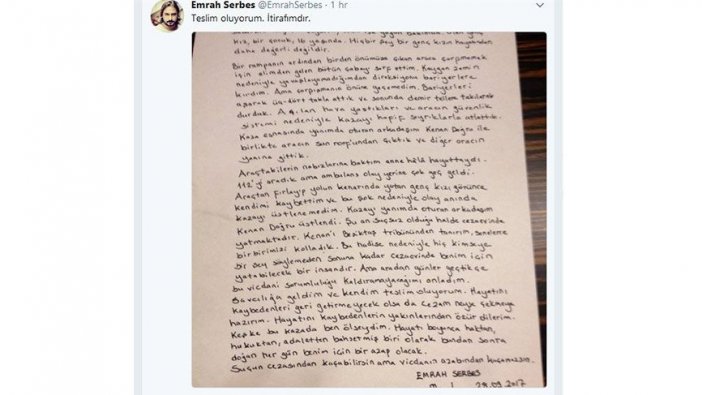 Emrah Serbes @EmrahSerbes · 1 hr
Teslim oluyorum. İtirafımdır.
kız, bir çocuk, 16 yaşında. Hiçbir şey bir genç kızın hayatından
daha değerli değildir.
Bir rampanın ardından birden önümüze çıkan araca çarpmamak
için elimden gelen bütün çabayı sarf ettim. Kaygan zemin
nedeniyle yavaşlayamadığımdan direksiyonu bariyerlere
kırdım. Ama çarpışmanın önüne geçemedim. Bariyerleri
aşarak üç-dört takla attık ve sonunda demir tellere takılarak
durduk. Açılan hava yastıkları ve aracın güvenlik
sistemi nedeniyle kazayı hafif sıyrıklarla atlattık.
Kaza esnasında yanımda oturan arkadaşım Kenan Doğru ile
birlikte aracın sun roof'undan çıktık ve diğer aracın
yanına gittik.
Araçtakilerin nabızlarına baktım anne hâlâ hayattaydı.
112'yi aradık ama ambulans olay yerine çok geç geldi.
Araçtan fırlayıp yolun kenarında yatan genç kızı görünce
kendimi kaybettim ve bu şok nedeniyle olay anında
kazayı üstlenemedim. Kazayı yanımda oturan arkadaşım
Kenan Doğru üstlendi. Şu an suçsuz olduğu halde cezaevinde
yatmaktadır. Kenan'ı Beşiktaş tribününden tanırım, senelerce
birbirimizi kolladık. Bu hadise nedeniyle hiç kimseye
bir şey söylemeden sonuna kadar cezaevinde benim için
yatabilecek bir insandır. Ama aradan günler geçtikçe
bu vicdani sorumluluğu kaldıramayacağımı anladım.
Savcılığa geldim ve kendim teslim oluyorum. Hayatını
kaybedenleri geri getirmeyecek olsa da cezam neyse çekmeye
hazırım. Hayatını kaybedenlerin yakınlarından özür dilerim.
Keşke bu kazada ben ölseydim. Hayatı boyunca haktan,
hukuktan, adaletten bahsetmiş biri olarak bundan sonra
doğan her gün benim için bir azap olacak.
Suçun cezasından kaçabilirsin ama vicdanın azabından kaçamazsın.
EMRAH SERBES
29.09.2017